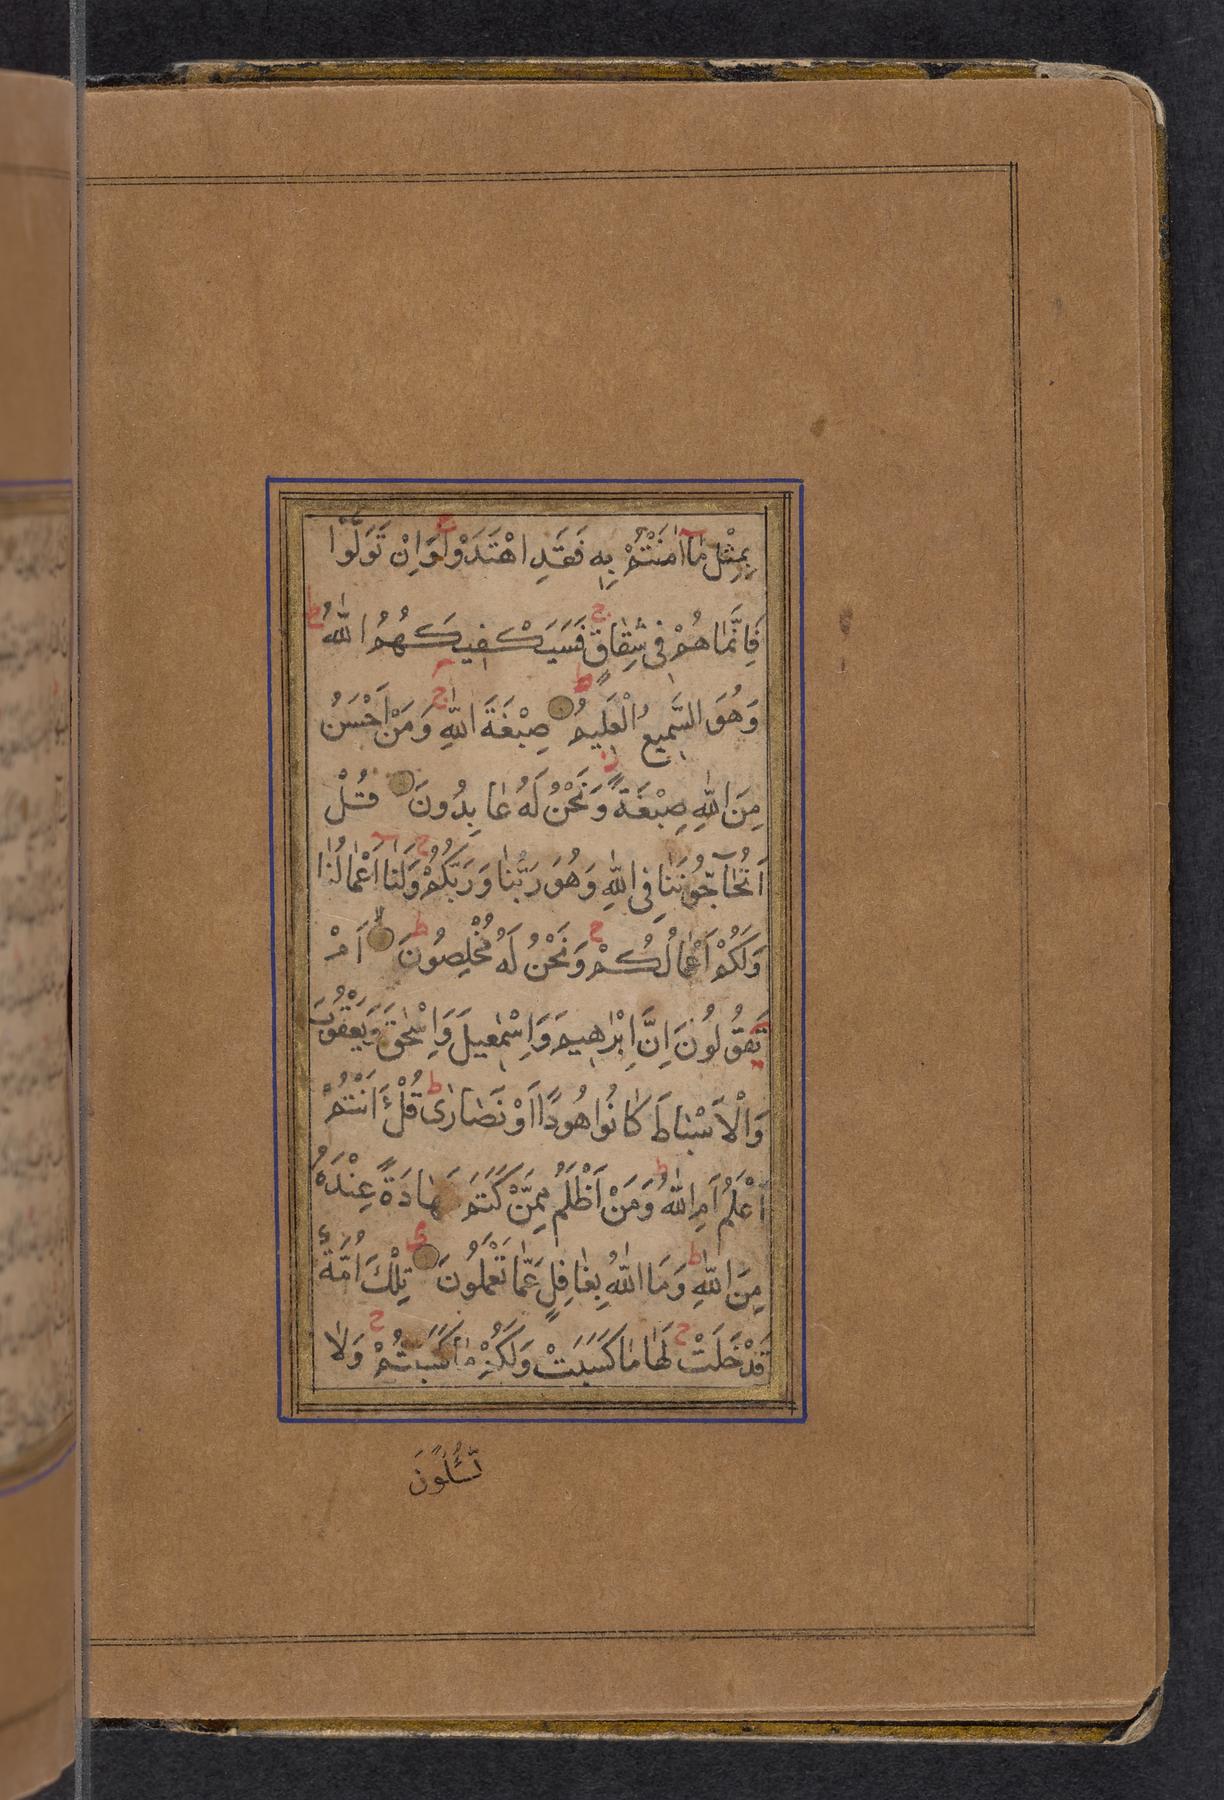 بِمِثْلِ مَآ اٰمَنْتُمْ بِهٖ فَقَدِ اهْتَدَوْا وَاِنْ تَوَلَّوْا
فَاِنَّمٰا هُمْ فٖى شِقٰاقٍ فَسَيَكْفٖيكَهُمُ اللّٰهُ
وَهُوَ السَّمٖيعُ الْعَلٖيمُ صِبْغَةَ اللّٰهِ وَمَنْ اَحْسَنُ
مِنَ اللّٰهِ صِبْغَةً وَنَحْنُ لَهُ عٰابِدُونَ قُلْ
اَتُحٰآجُّونَنٰا فِى اللّٰهِ وَهُوَ رَبُّنٰا وَرَبُّكُمْ وَلَنٰا اَعْمٰالُنٰا
وَلَكُمْ اَعْمٰالُكُمْ وَنَحْنُ لَهُ مُخْلِصُونَ اَمْ
تَقُولُونَ اِنَّ اِبْرٰهٖيمَ وَاِسْمٰعٖيلَ وَاِسْحٰقَ وَيَعْقُوبَ
وَالْاَسْبٰاطَ كٰانُوا هُودًا اَوْ نَصٰارٰى قُلْ ءَاَنْتُمْ
اَعْلَمُ اَمِ اللّٰهُ وَمَنْ اَظْلَمُ مِمَّنْ كَتَمَ شَهٰادَةً عِنْدَهُ
مِنَ اللّٰهِ وَمَا اللّٰهُ بِغٰافِلٍ عَمّٰا تَعْمَلُونَ تِلْكَ اُمَّةٌ
قَدْ خَلَتْ لَهٰا مٰا كَسَبَتْ وَلَكُمْ مٰا كَسَبْتُمْ وَلٰا
تُسْـَٔلُونَ